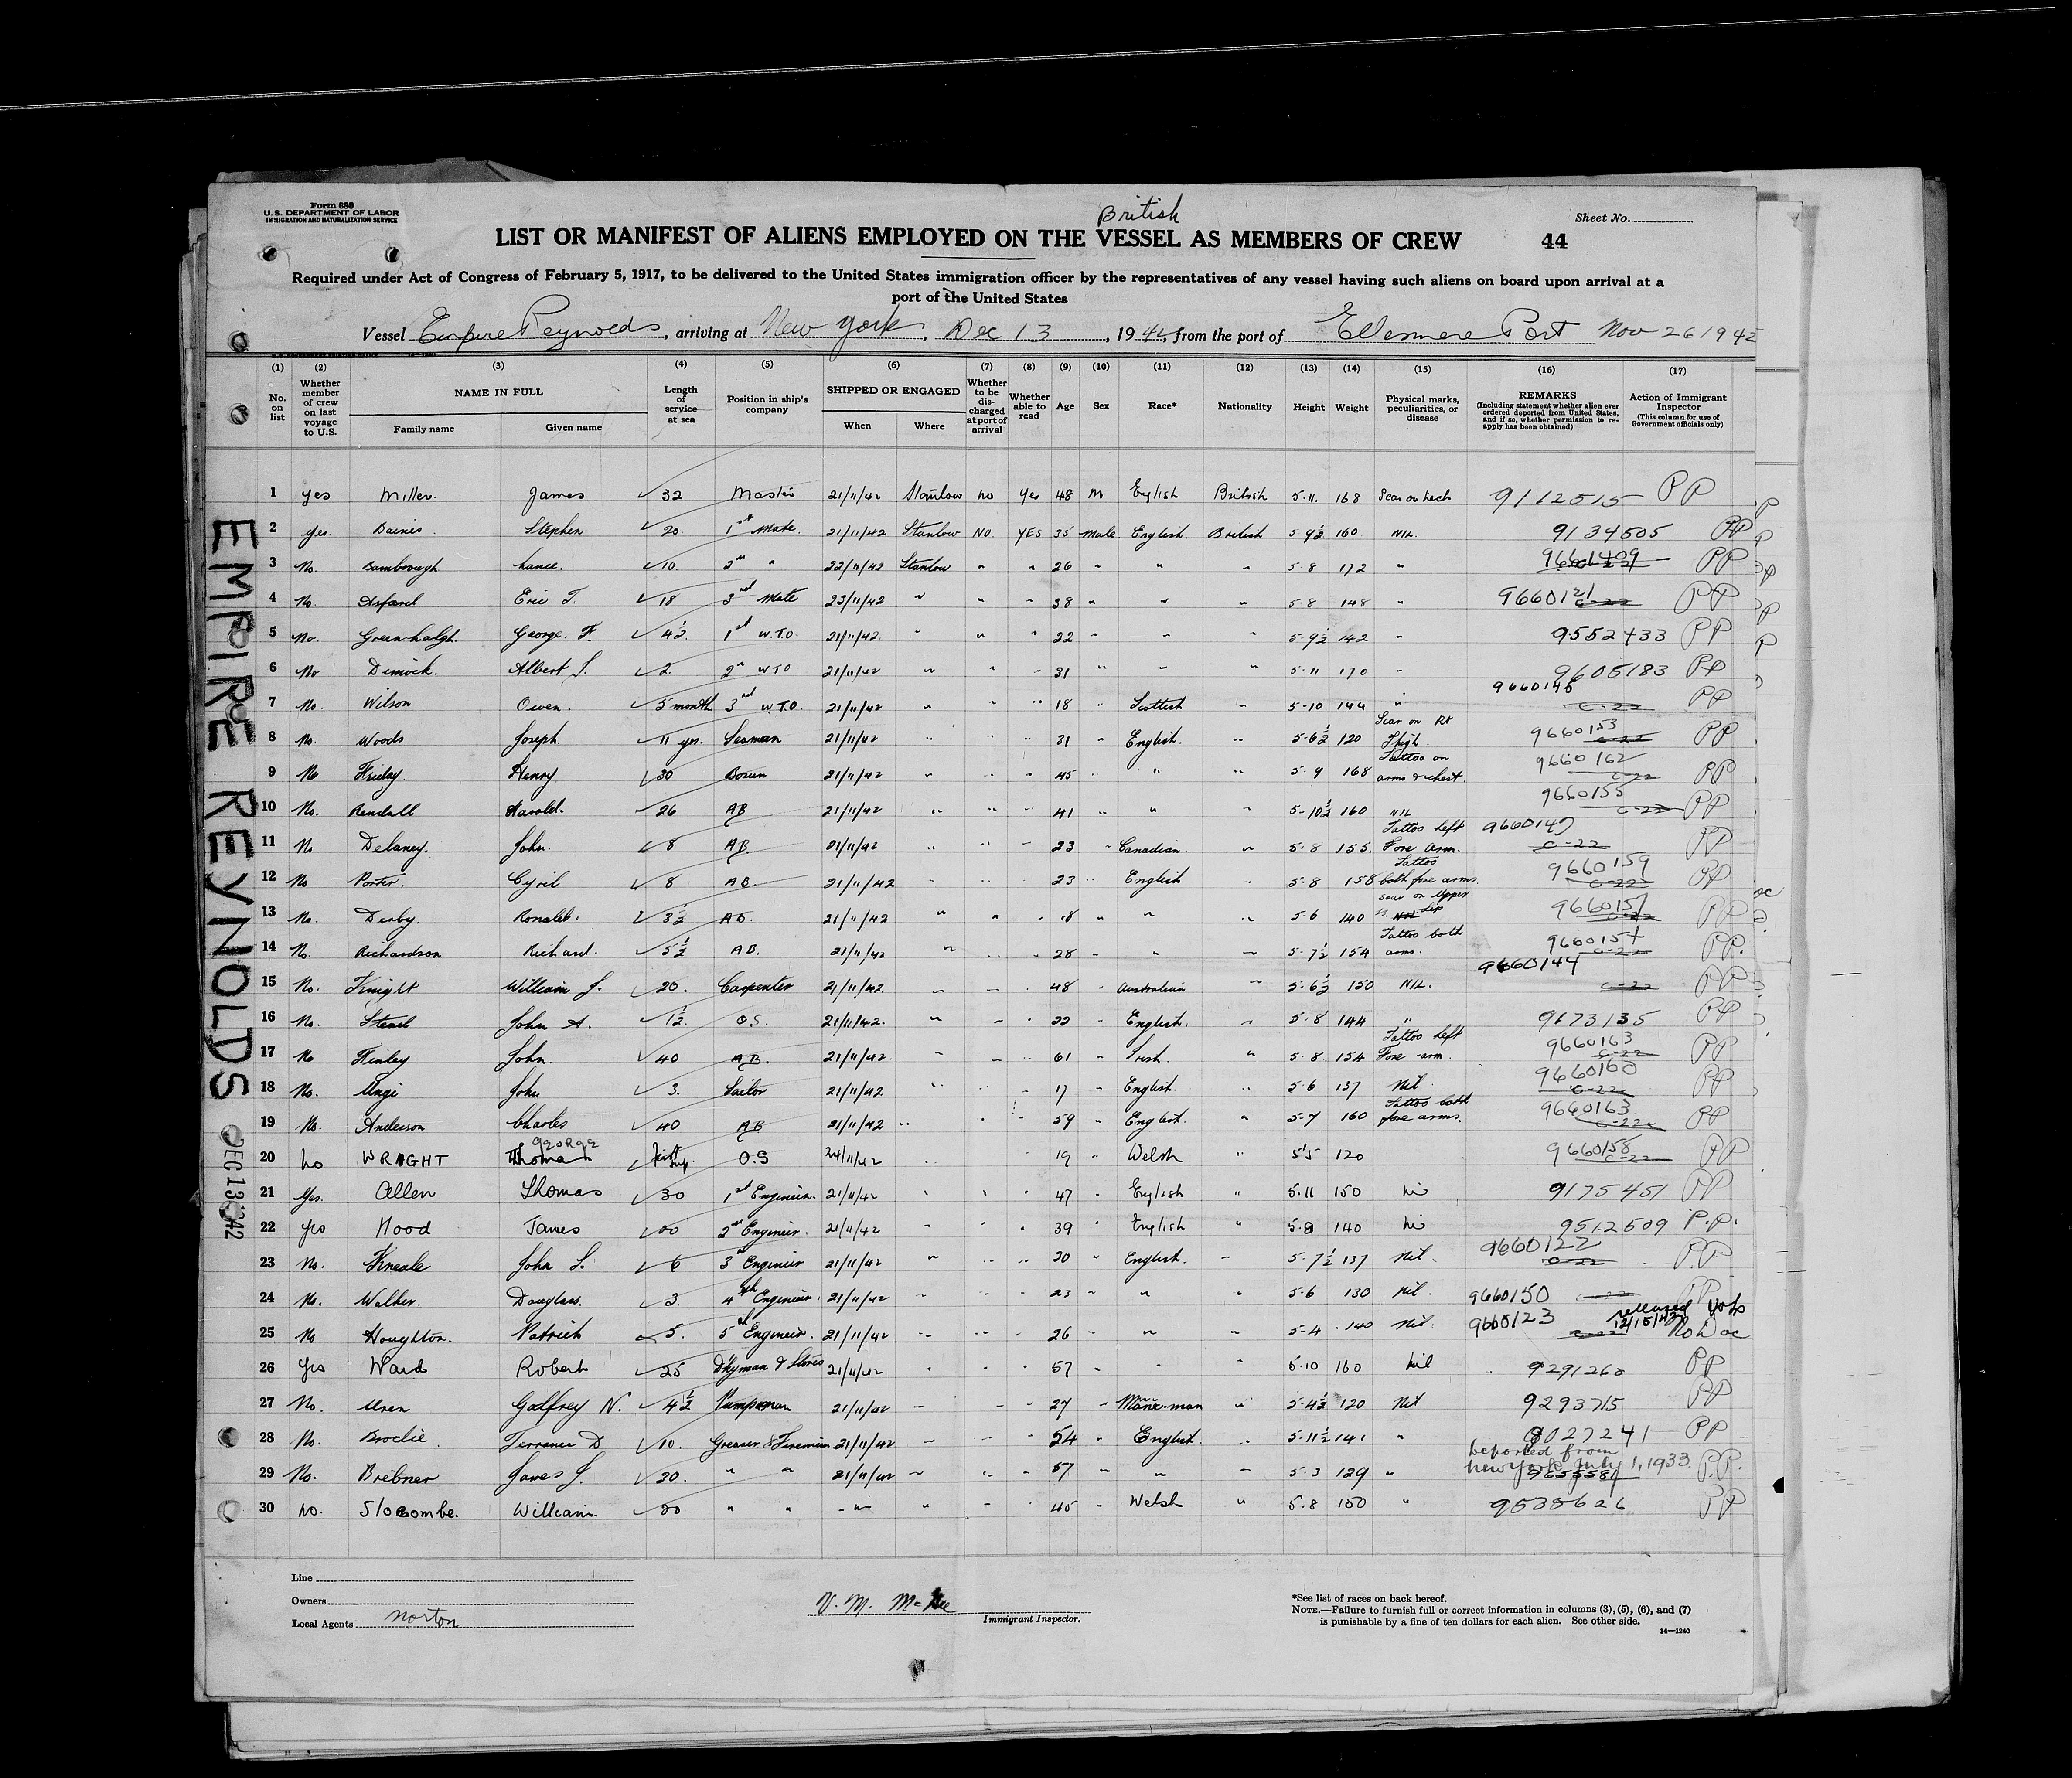 Form 680
U.S. DEPARTMENT OF LABOR
IMMIGRATION AND NATURALIZATION SERVICE
British
Sheet No.
LIST OR MANIFEST OF ALIENS EMPLOYED ON THE VESSEL AS MEMBERS OF CREW 44
Required under Act of Congress of February 5, 1917, to be delivered to the United States immigration officer by the representatives of any vessel having such aliens on board upon arrival at a
port of the United States
Vessel Empire Reynolds, arriving at New York, Dec 13, 1942, from the port of Ellesmere Port Nov 26 1942
(1) (2) (3) (4) (5) (6) (7) (8) (9) (10) (11) (12) (13) (14) (15) (16) (17)
No. on list
Whether member of crew on last voyage to U.S.
NAME IN FULL
Family name
Given name
Length of service at sea
Position in ship's company
SHIPPED OR ENGAGED
When
Where
Whether to be discharged at port of arrival
Whether able to read
Age
Sex
Race*
Nationality
Height
Weight
Physical marks, peculiarities, or disease
REMARKS
(Including statement whether alien ever ordered deported from United States, and if so, whether permission to reapply has been obtained)
Action of Immigrant Inspector
(This column for use of Government officials only)
1 yes Miller. James 32 Master 21/11/42 Stanlow no Yes 48 M English British 5.11. 168 Scar on neck 9112515 PP
2 yes. Baines. Stephen 20. 1st Mate. 21/11/42 Stanlow NO. YES 35 male English. British 5-9½ 160 NIL. 9134505 PP
3 No. Bambrough Lance. 10. 2nd " 22/11/42 Stanlow " " 26 " " " 5-8 172 " PP
4 No. Eric T. 18 3rd Mate 23/11/42 " " " 38 " " " 5-8 148 " 9660121 C-22 PP
5 No. Greenhalgh. George. F. 4½. 1st W.T.O. 21/11/42. " " " 22 " " " 5-9½ 142 " 9552433 PP
6 No Dimock. Albert S. 2. 2nd WTO 21/11/42 " " " 31 " " " 5-11 170 " 9605183 PP
7 No. Wilson Owen. 5 month 3rd W.T.O. 21/11/42 " " " 18 " Scottish " 5-10 144 " 9660145 C-22 PP
8 No. Woods Joseph. 11 yrs. Seaman 21/11/42 " " " 31 " English. " 5-6½ 120 Scar on Rt Thigh. 9660153 C-22 PP
9 No Friday. Henry 30 Bosun 21/11/42 " " " 45 " " " 5-9 168 Tattoo on arms & chest. 9660162 C-22 PP
10 No. Rendall Harold. 26 AB 21/11/42 " " " 41 " " " 5-10½ 160 NIL 9660155 C-22 PP
11 No Delaney. John. 8 AB. 21/11/42 " " " 23 " Canadian. " 5-8 155. Tattoo Left Fore Arm. C-22 PP
12 No Porter. Cyril 8 AB. 21/11/42 " 23 " English " 5-8 158 Tattoo both fore arms. 9660159 C-22 PP
13 No. Derby. Ronald. 3½ AB. 21/11/42 " " " 18 " " " 5-6 140 Scar on Upper Lip C-22 PP
14 No. Richardson Richard. 5½ AB. 21/11/42 " " " 28 " " " 5-7½ 154 Tattoo both arms. C-22 PP.
15 No. Knight William J. 20. Carpenter 21/11/42. " " " 48 " Australian " 5-6½ 150 NIL. 9660144 C-22 PP
16 No. John A. 1½. O.S. 21/11/42. " " " 22 " English. " 5-8 144 " 9673135 PP
17 No Finley John. 40 AB. 21/11/42. " " " 61 " Irish. " 5-8. 154 Tattoo Left Fore-arm. 9660163 C-22 PP
18 No. John 3. Sailor 21/11/42. " " " 17 " English. " 5-6 137 Nil. 9660160 C-22 PP
19 No. Anderson Charles 40 AB 21/11/42 " " " 59 " English. " 5-7 160 Tattoo both fore arms. 9660163 C-22 PP
20 no WRIGHT Thomas George First trip. O.S 24/11/42 " " 19 " Welsh " 5'5 120 9660158 C-22 PP
21 Yes. Allen Thomas 30 1st Engineer. 21/11/42 " " " 47 " English " 5.11 150 9175451 PP
22 yes Hood James 20 2nd Engineer. 21/11/42 " " " 39 " English " 5.8 140 9512509 P.P.
23 No. Kneale John S. 6 3rd Engineer 21/11/42 " " " 30 " English. " 5-7½ 137 Nil. 9660122 C-22 PP
24 No. Walker. Douglass. 3. 4th Engineer. 21/11/42 " " " 23 " " " 5-6 130 Nil. 9660150 C-22 PP
25 No Houghton. Patrick 5. 5th Engineer. 21/11/42 " " " 26 " " " 5-4 140 Nil. 9660123 released 12/15/42 No Doc
26 yes Ward Robert 25 D'kyman & Stores 21/11/42 " " " 57 " " " 5.10 160 nil 9291260 PP
27 No. Godfrey N. 4½ Pumpman 21/11/42 " " " 27 " Manx-man " 5-4½ 120 Nil 9293715 PP
28 No. Brodie. Terrance D 10. Greaser & Fireman 21/11/42 " " " 54 " English. " 5-11½ 141 " PP
29 No. Brebner James J. 30. " " 21/11/42 " " " 57 " " " 5-3 129 " Deported from New York July 1, 1933 P.P.
30 no. Slocombe. William. 20 " " " " " " 45 " Welsh " 5.8 150 " 9535626 PP
EMPIRE REYNOLDS DEC 13 1942
Line
Owners
Local Agents Norton
Immigrant Inspector.
*See list of races on back hereof.
NOTE.—Failure to furnish full or correct information in columns (3), (5), (6), and (7)
is punishable by a fine of ten dollars for each alien. See other side.
14—1240